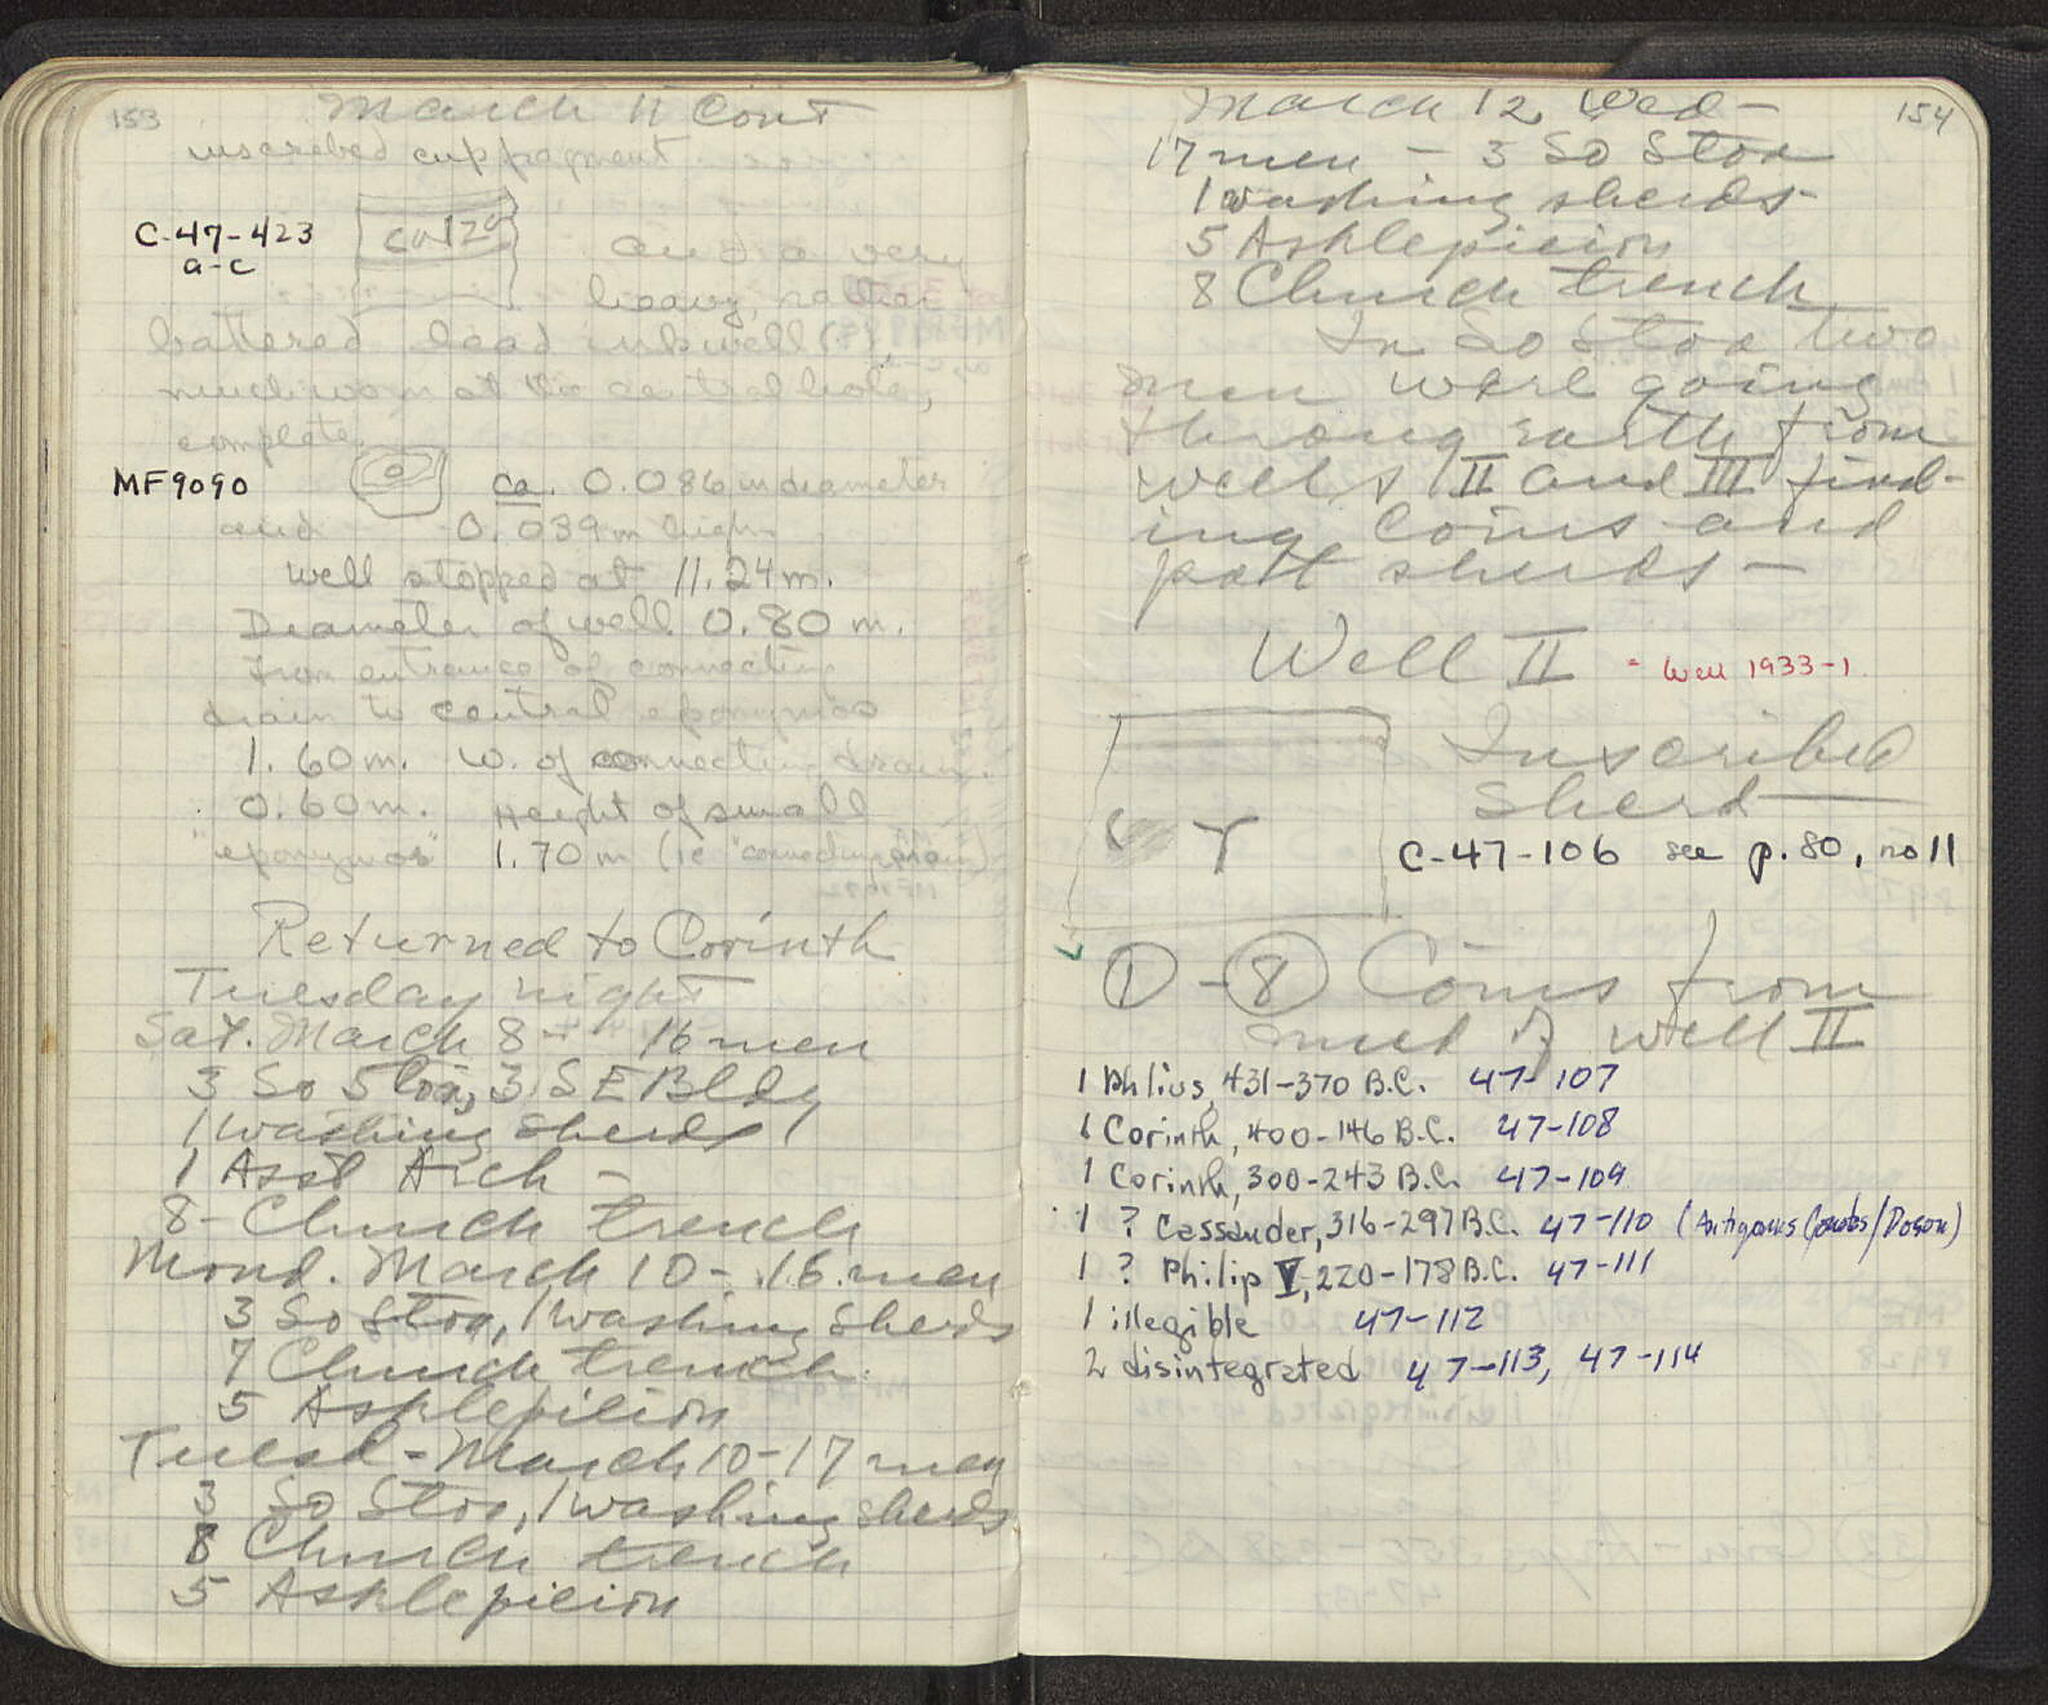 153
March 11 Cont
inscribed cup fragment
C-47-423
a-c
and a very
heavy, rather
battered lead inkwell (?)
much worn at the central hole,
complete.
MF9090
ca. 0.086 m diameter
and 0.039m high
Well stopped at 11.24m.
Diameter of well 0.80 m.
From entrance of connecting
drain to central eponymos
1.60m. W. of connecting drain.
0.60m. Height of small
"eponymos" 1.70m (ie "connecting drain)
Returned to Corinth
Tuesday night
Sat. March 8 - 16 men
3 So Stoa, 3 SE Bldg
1 washing sherds
1 Asst Arch -
8 - Church trench
Mond. March 10 - 16 men
3 So Stoa, 1 washing sherds
7 Church trench
5 Asklepieion
Tuesd - March 10 - 17 men
3 So Stoa, 1 washing sherds
8 Church trench
5 Asklepieion
154
March 12 Wed -
17 men - 3 So Stoa
1 washing sherds
5 Asklepieion
8 Church trench
In So Stoa two
men were going
throug earth from
wells II and III find-
ing coins and
pott sherds -
Well II = Well 1933-1
Inscribed
Sherd
Υ
C-47-106 see p. 80, no 11
1 - 8 Coins from
mud of well II
1 Phlius, 431-370 B.C. 47-107
1 Corinth, 400-146 B.C. 47-108
1 Corinth, 300-243 B.C. 47-109
1 ? Cassander, 316-297 B.C. 47-110 (Antigonus Gonatas/Doson)
1 ? Philip V, 220-178 B.C. 47-111
1 illegible 47-112
2 disintegrated 47-113, 47-114